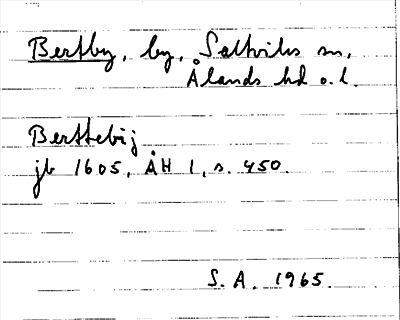 Bertby, by, Saltviks sn,
Ålands hd o. l.
Berttebij
jb 1605, ÅH 1, s. 450.
S. A. 1965.